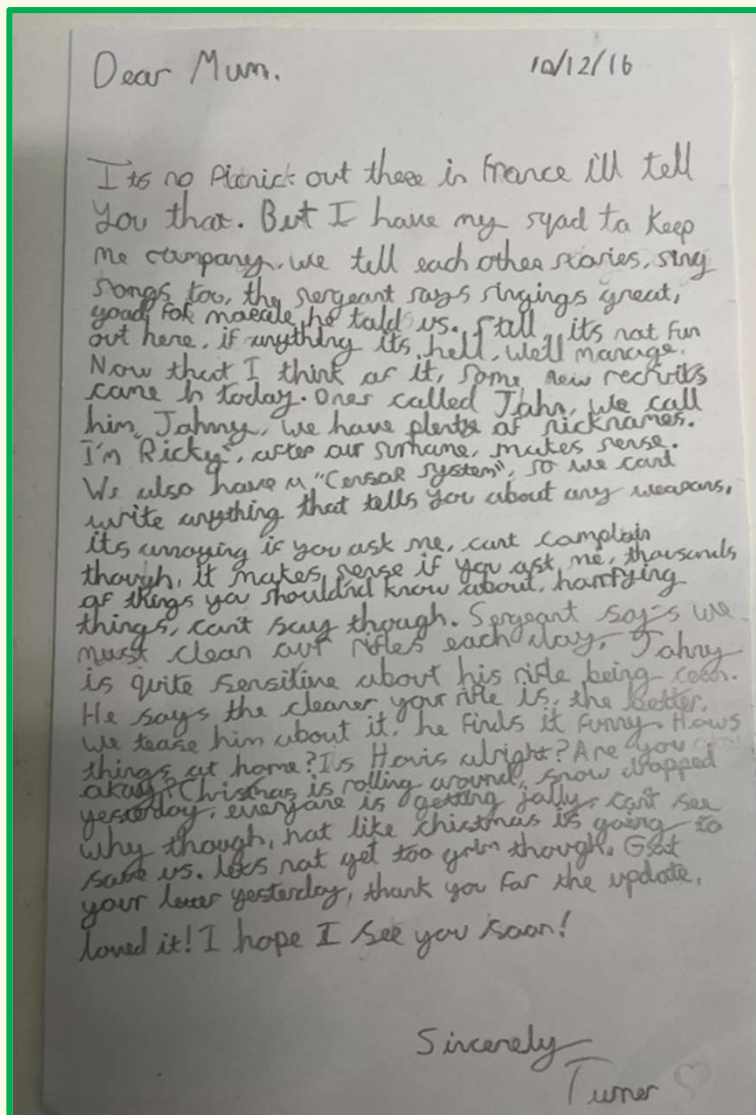 Dear Mum. 10/12/16
Its no Picnick out there in France ill tell
you that. But I have my sqad to keep
me company, we tell each other stories, sing
songs too, the sergeant says singings great,
good for morale he told us. Still, its not fun
out here, if anything its hell, we'll manage.
Now that I think of it, some new recruits
came in today. Ones called John, we call
him Johnny, we have plenty of nicknames.
I'm "Ricky", after our surname, makes sense.
We also have a "Censor system", so we cant
write anything that tells you about any weapons,
its annoying if you ask me, cant complain
though, it makes sense if you ask me, thousands
of things you should'nd know about, horrifying
things, can't say though. Sergeant says we
must clean our rifles each day, Johny
is quite sensitive about his rifle being
He says the cleaner your rifle is, the better.
We tease him about it, he finds it funny. Hows
things at home? Is alright? Are you
okay? Christmas is rolling around, snow dropped
yesterday, everyone is getting jolly, can't see
why though, not like christmas is going to
save us. lets not get too grim though. Got
your letter yesterday, thank you for the update,
loved it! I hope I see you soon!
Sincerely
Turner ♡